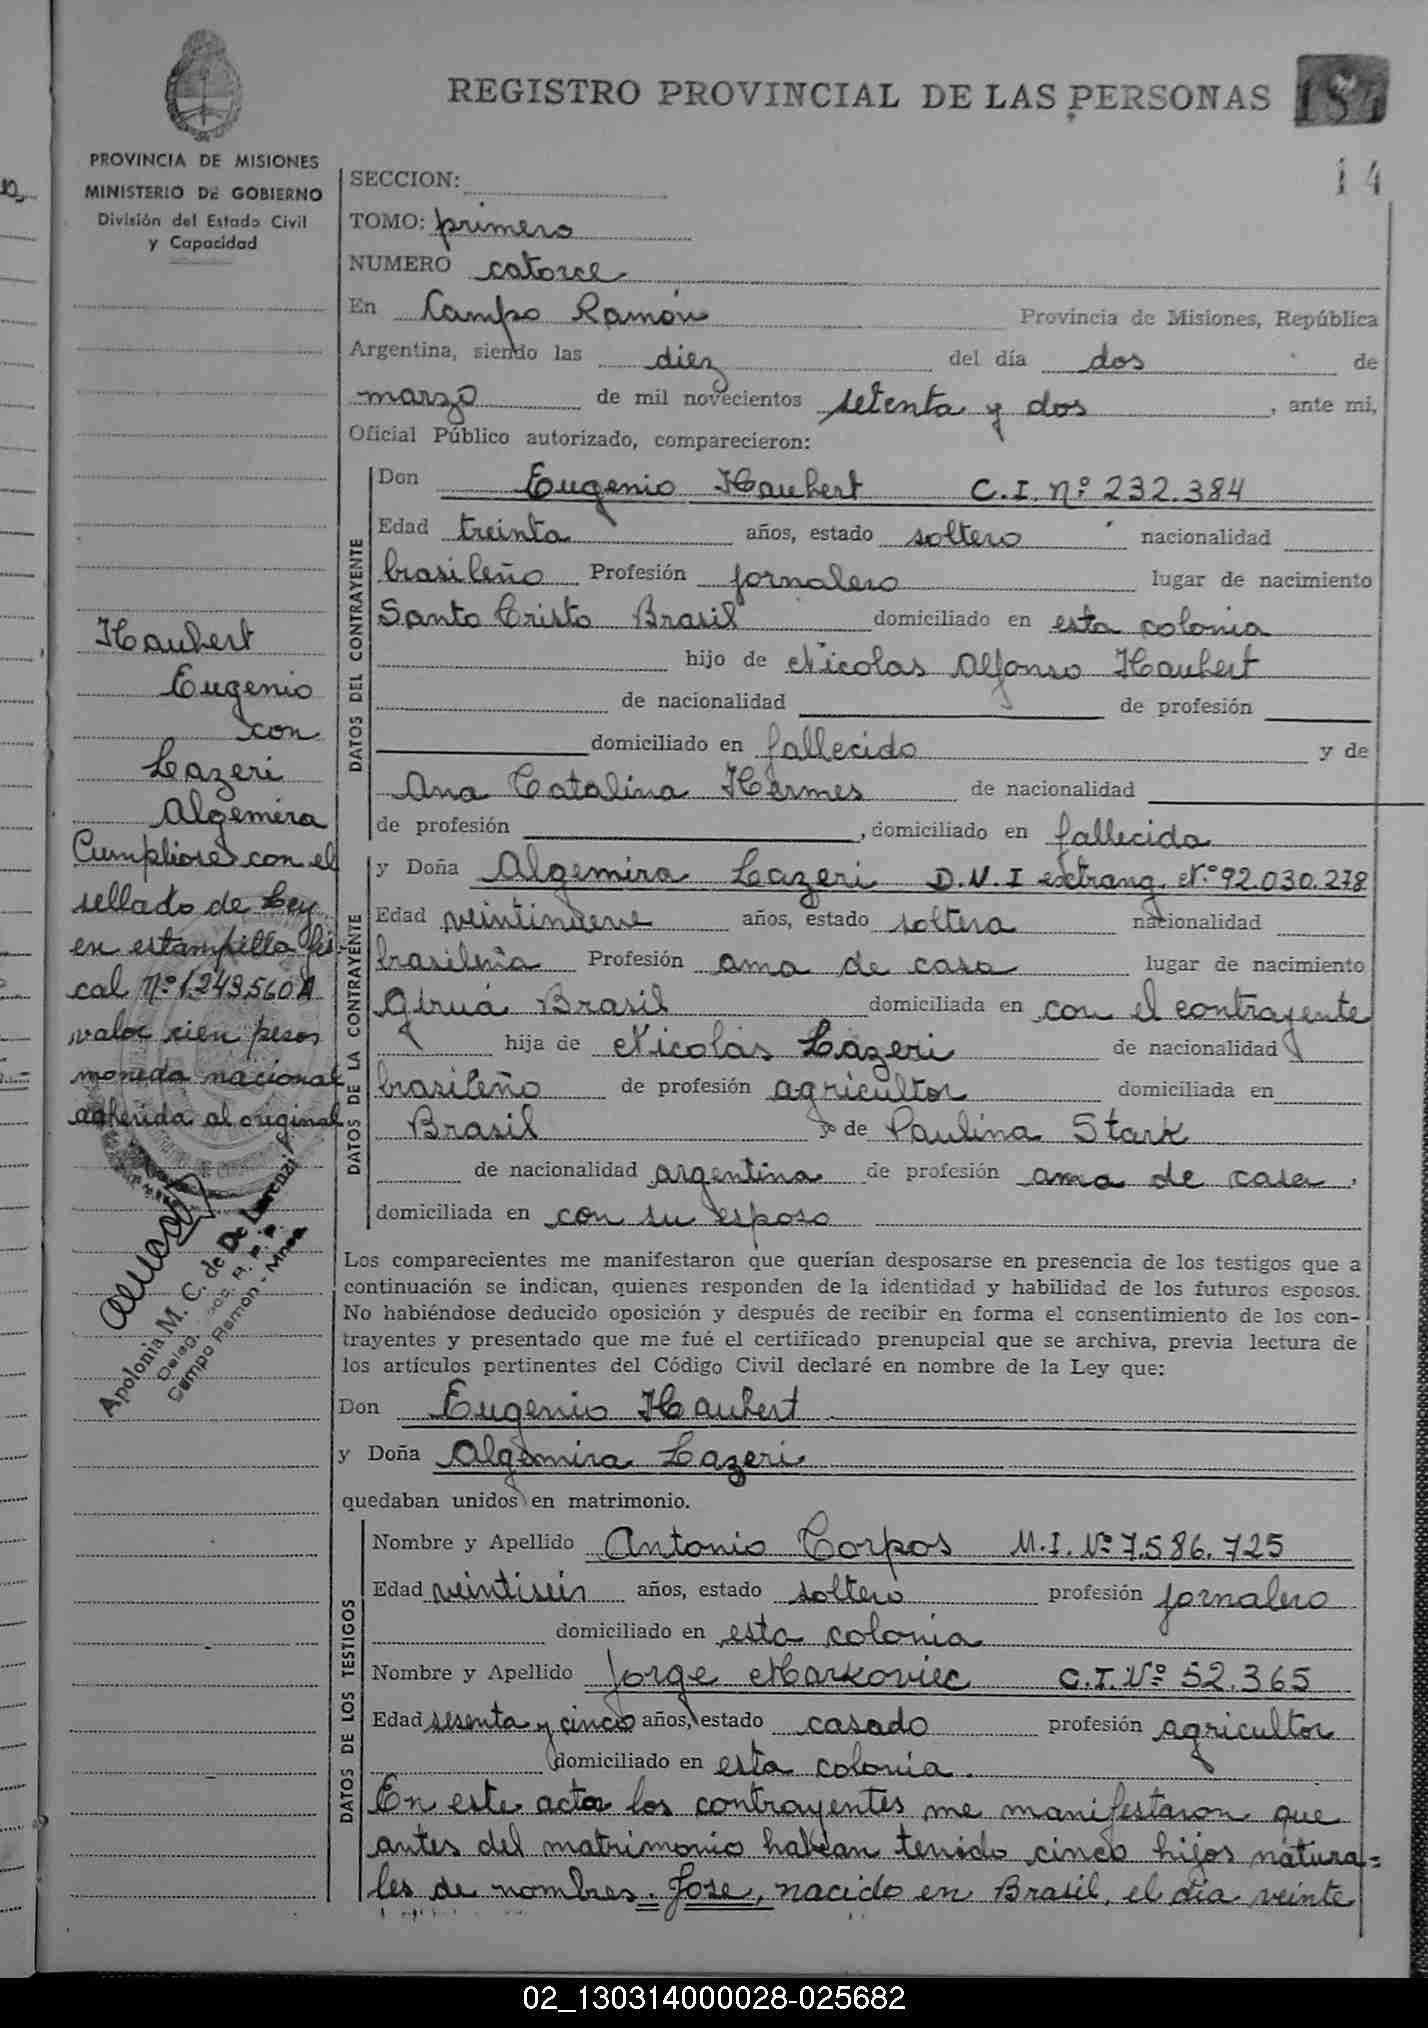 REGISTRO PROVINCIAL DE LAS PERSONAS
14
PROVINCIA DE MISIONES
MINISTERIO DE GOBIERNO
División del Estado Civil
y Capacidad
SECCION:
TOMO: primero
NUMERO catorce
En Campo Ramón Provincia de Misiones, República
Argentina, siendo las diez del día dos de
marzo de mil novecientos setenta y dos, ante mi,
Oficial Público autorizado, comparecieron:
DATOS DEL CONTRAYENTE
Don Eugenio Haubert C.I. Nº 232.384
Edad treinta años, estado soltero nacionalidad
brasileño Profesión jornalero lugar de nacimiento
Santo Cristo Brasil domiciliado en esta colonia
hijo de Nicolas Alfonso Haubert
de nacionalidad de profesión
domiciliado en fallecido y de
Ana Catalina Hermes de nacionalidad
de profesión , domiciliado en fallecida
DATOS DE LA CONTRAYENTE
y Doña Algemira Lazeri D.N.I extrang. Nº 92.030.278
Edad veintinueve años, estado soltera nacionalidad
brasileña Profesión ama de casa lugar de nacimiento
Giruá Brasil domiciliada en con el contrayente
hija de Nicolás Lazeri de nacionalidad
brasileño de profesión agricultor domiciliada en
Brasil y de Paulina Stark
de nacionalidad argentina de profesión ama de casa,
domiciliada en con su esposo
Haubert
Eugenio
con
Lazeri
Algemira
Cumpliose con el
sellado de Ley
en estampilla fis-
cal Nº 1.243.560 A
valor cien pesos
moneda nacional
adherida al original
Apolonia M. C. de De Lorenzi
Deleg. R. P. P.
Campo Ramon - Mnes
Los comparecientes me manifestaron que querían desposarse en presencia de los testigos que a
continuación se indican, quienes responden de la identidad y habilidad de los futuros esposos.
No habiéndose deducido oposición y después de recibir en forma el consentimiento de los con-
trayentes y presentado que me fué el certificado prenupcial que se archiva, previa lectura de
los artículos pertinentes del Código Civil declaré en nombre de la Ley que:
Don Eugenio Haubert
y Doña Algemira Lazeri
quedaban unidos en matrimonio.
DATOS DE LOS TESTIGOS
Nombre y Apellido Antonio Corpos M.I. Nº 7.586.725
Edad veintiseis años, estado soltero profesión jornalero
domiciliado en esta colonia
Nombre y Apellido Jorge Markoviec C.I. Nº 52.365
Edad sesenta y cinco años, estado casado profesión agricultor
domiciliado en esta colonia.
En este acta los contrayentes me manifestaron que
antes del matrimonio habían tenido cinco hijos natura=
les de nombres. Jose, nacido en Brasil, el día veinte
02_130314000028-025682